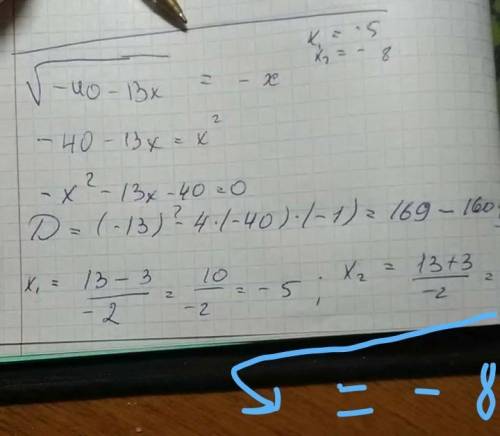 x₁ = -5
x₂ = - 8
√(-40 - 13x) = - x
- 40 - 13x = x²
- x² - 13x - 40 = 0
D = (-13)² - 4·(-40)·(-1) = 169 - 160
x₁ = (13 - 3)/(-2) = 10/(-2) = - 5 ; x₂ = (13 + 3)/(-2) =
= - 8